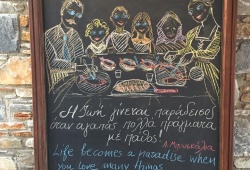 Η ζωή γίνεται παράδεισος
όταν αγαπάς πολλά πράγματα
με πάθος!
Life becomes a paradise when
you love many things